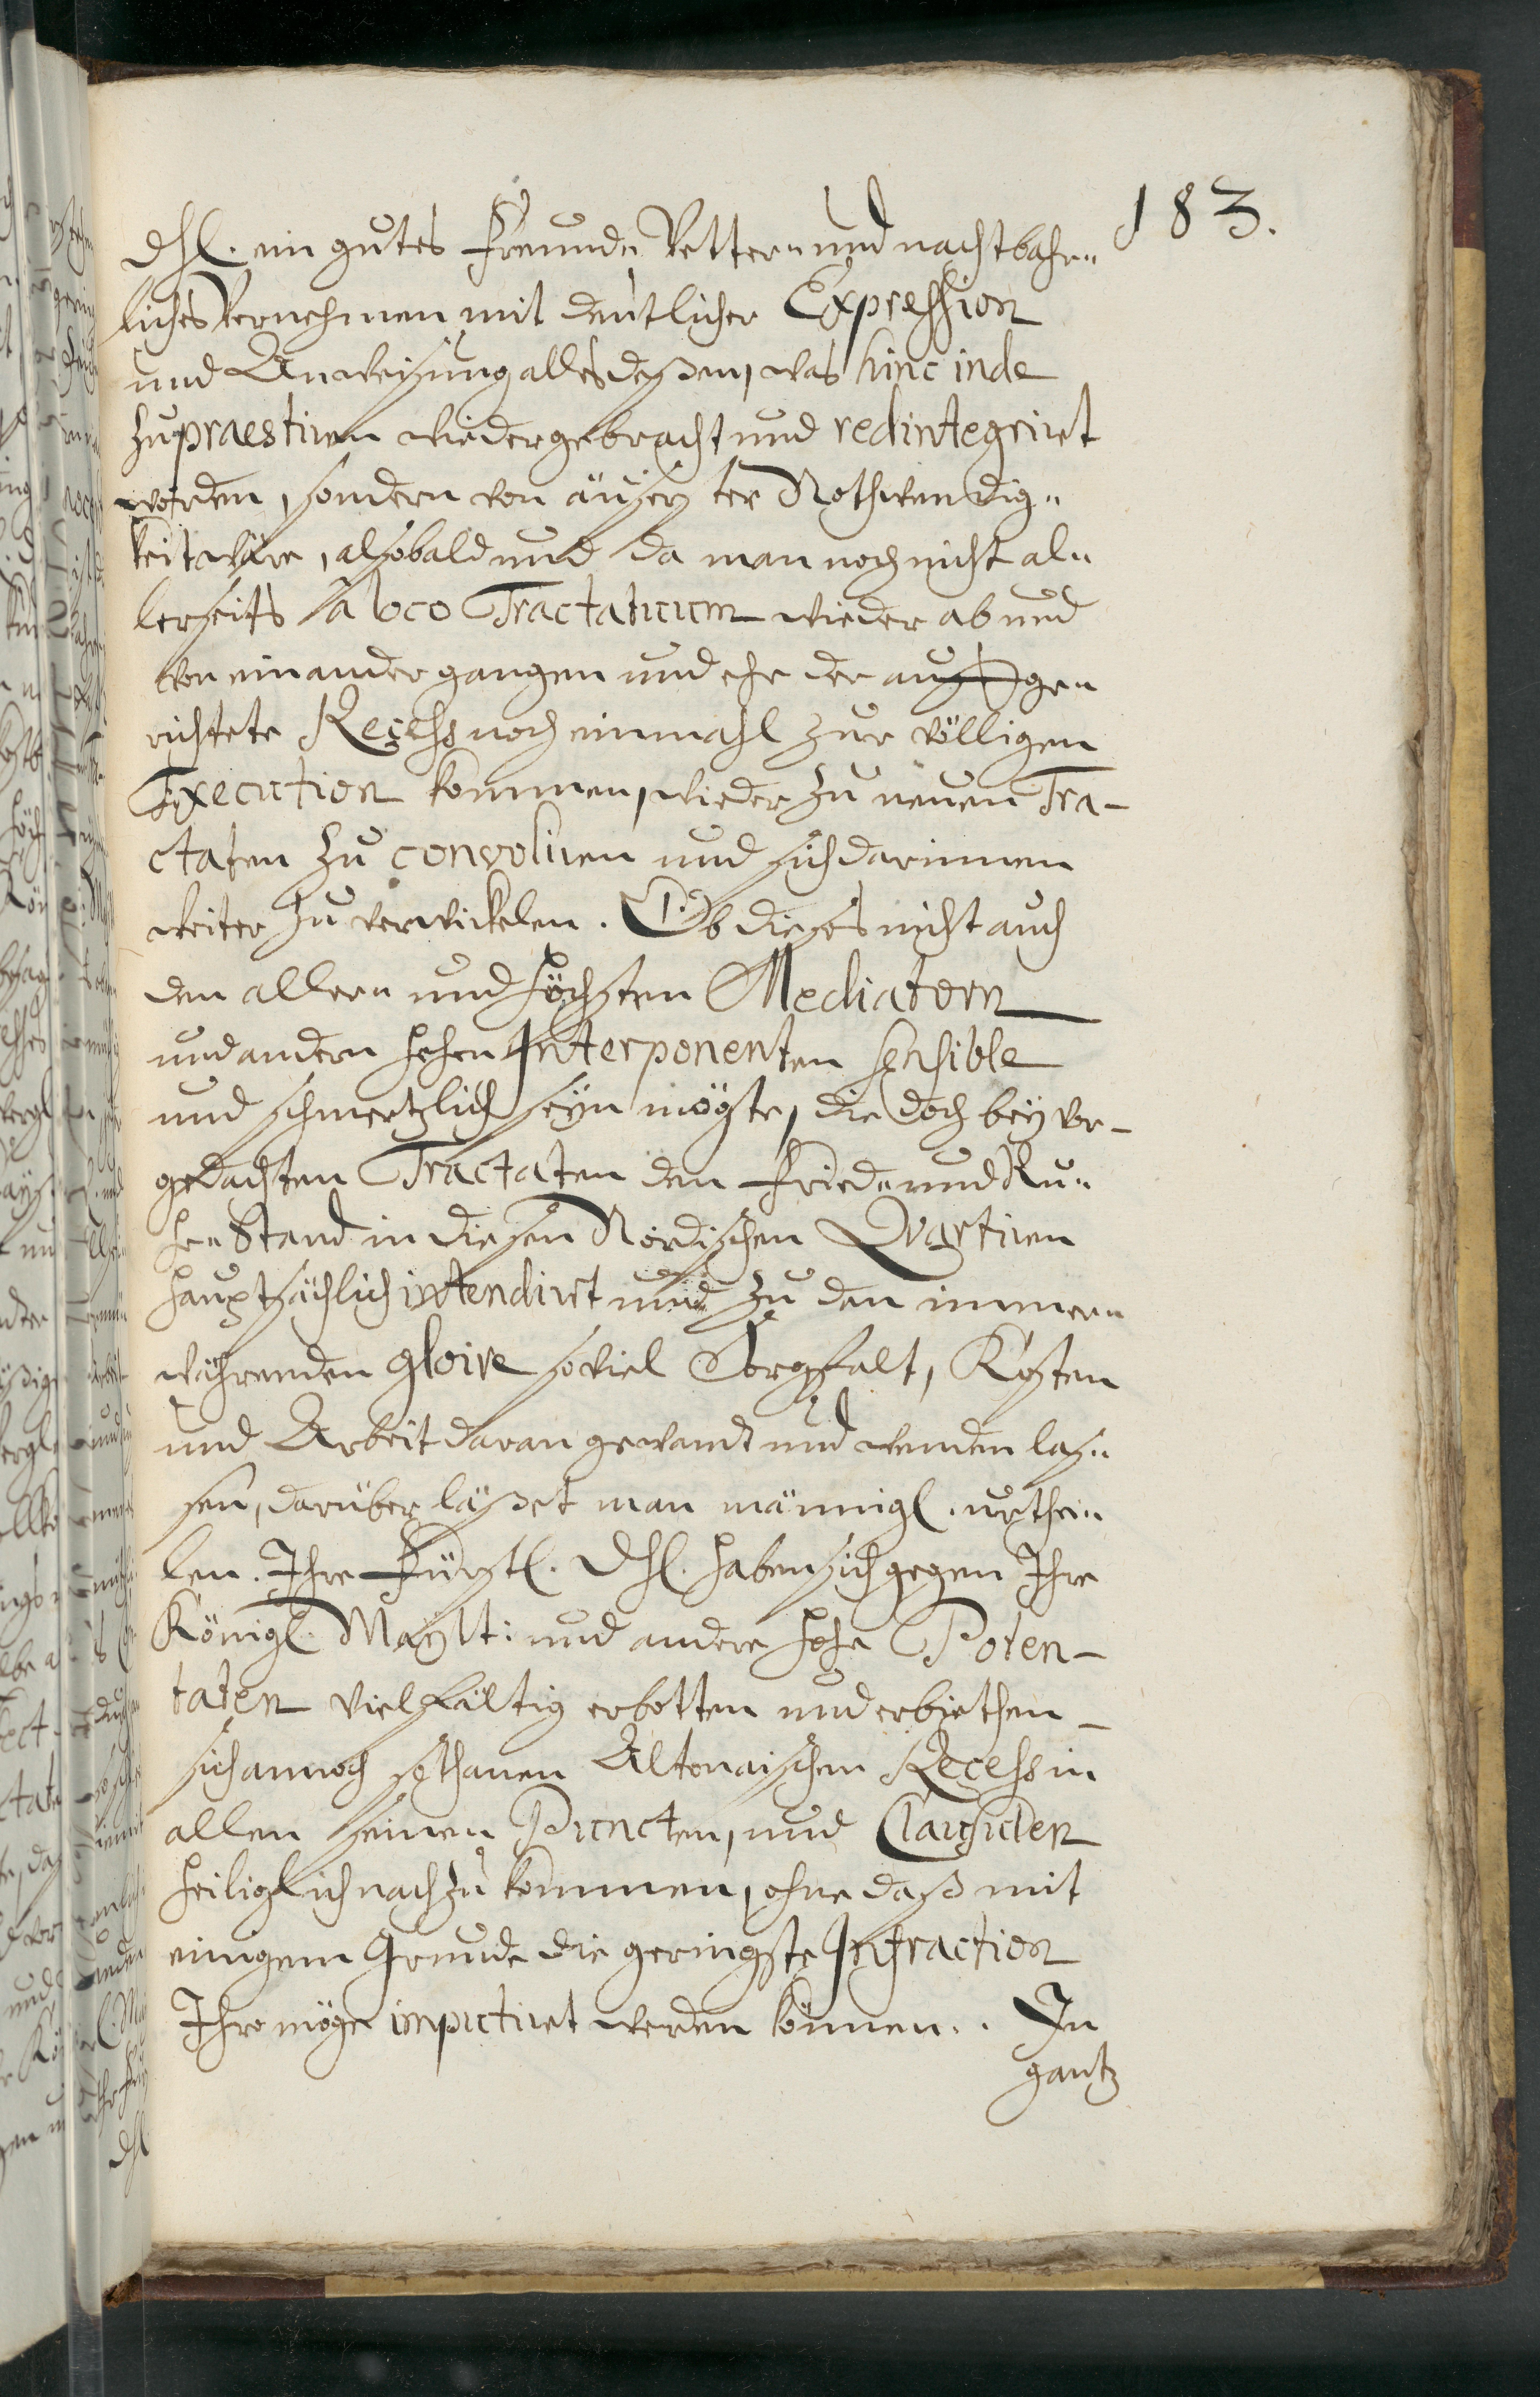 183.
Dhl. ein gutes Freund- Vetter- und nachtbahr-
liches Vernehmen mit deutlicher Expression
und Anweisung alles deßen, was hinc inde
zu praestiren wiedergebracht und redintegriret
worden, sondern von äuserster Nothwendig-
keit wäre, alsobald und da man noch nicht al-
lerseits a loco Tractatuum wieder ab und
von einander gangen und ehe der aufge-
richtete Recess noch einmahl zur völligen
Execution kommen, wieder zu neuen Tra-
ctaten zu convoliren und sich darinnen
weiter zu verwickelen. Ob dieses nicht auch
den aller- und höchsten Mediatorn
und andern hohen Interponenten sensible
und schmertzlich seyn mögte, die doch bey vor-
gedachten Tractaten den Fried- und Ru-
he-Stand in diesen Nordischen Quartiren
hauptsächlich intendirt und zu den immer-
währenden gloire so viel Sorgfalt, Kosten
und Arbeit daran gewandt und wenden las-
sen, darüber läßet man männigl. urthei-
len. Ihre Fürstl. Dhl. haben sich gegen Ihre
Königl. Maystt: und andere hohe Poten-
taten vielfältig erbotten und erbiethen
sich annoch sothanen Altonaischen Recess in
allen seinen Puncten, und Clausulen
heiliglich nachzukommen, ohne daß mit
einigem Grunde die geringste Infraction
Ihro möge imputiret werden können. In
gantz